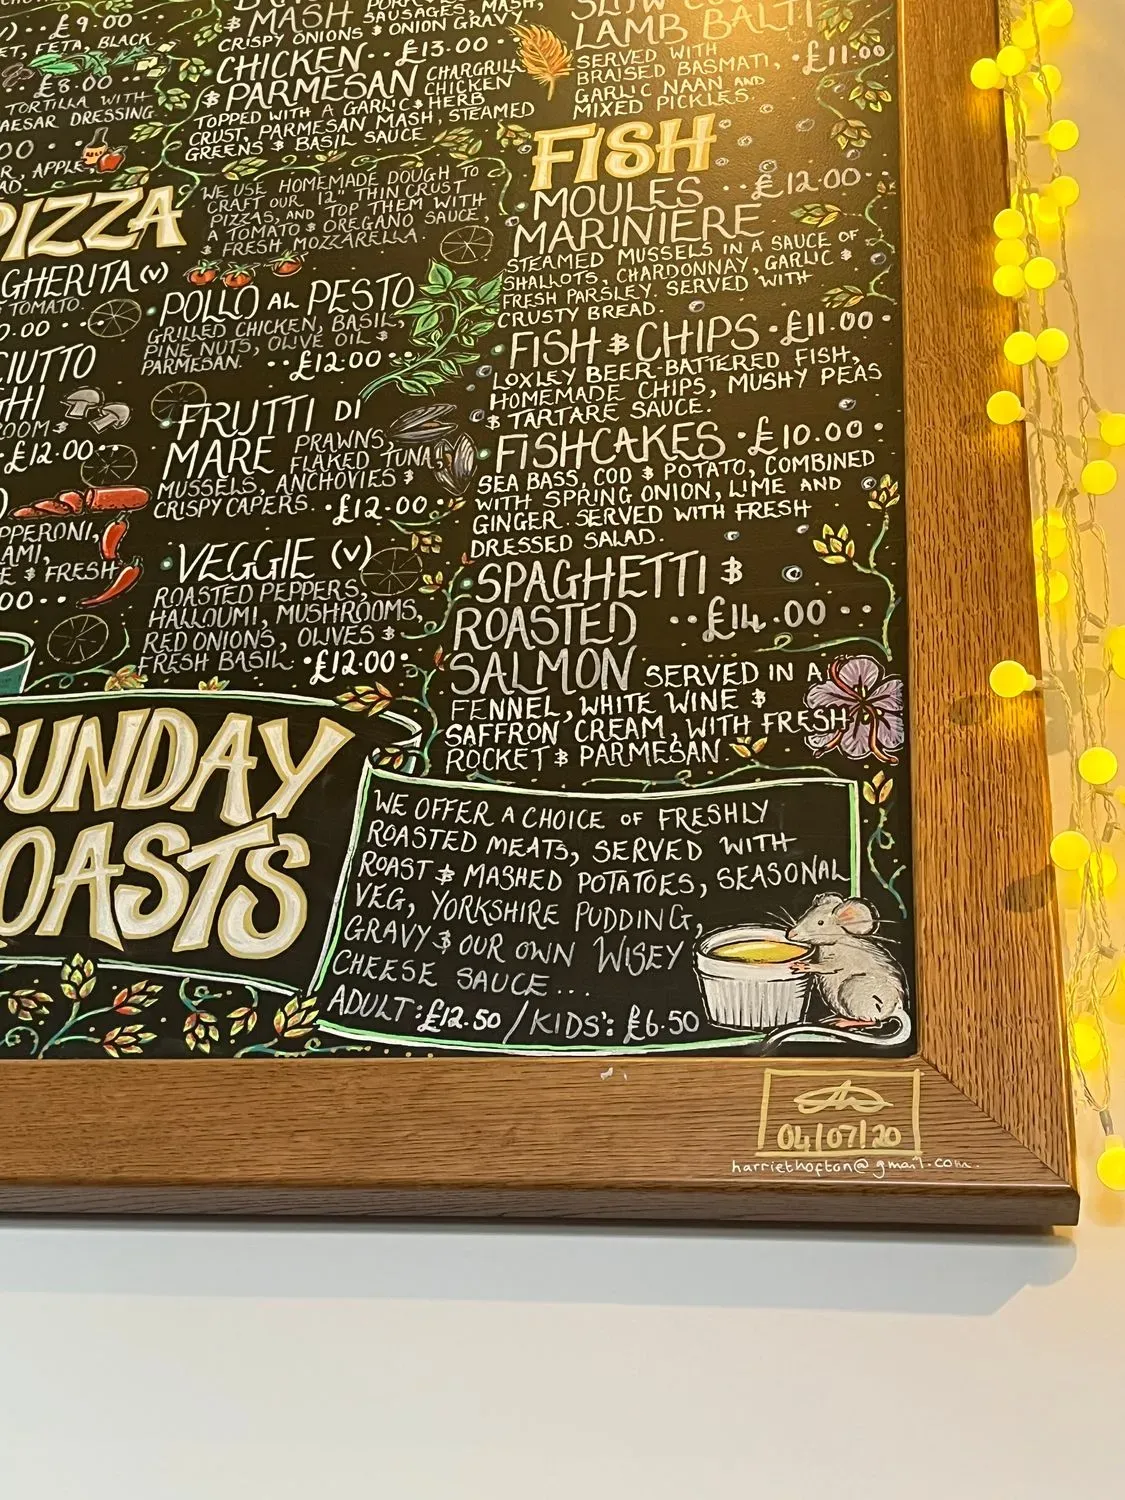 MASH
SAUSAGES, MASH,
CRISPY ONIONS & ONION GRAVY.
CHICKEN ·· £13.00 ··
& PARMESAN CHARGRILL
CHICKEN
TOPPED WITH A GARLIC & HERB
CRUST, PARMESAN MASH, STEAMED
GREENS & BASIL SAUCE
£9.00
FETA, BLACK
£8.00
TORTILLA WITH
AESAR DRESSING
APPLE,
LAMB BALTI
SERVED WITH
BRAISED BASMATI, · £11.00
GARLIC NAAN AND
MIXED PICKLES.
PIZZA
WE USE HOMEMADE DOUGH TO
CRAFT OUR 12" THIN CRUST
PIZZAS, AND TOP THEM WITH
A TOMATO & OREGANO SAUCE,
& FRESH MOZZARELLA.
GHERITA (V)
TOMATO.
0.00 ··
CIUTTO
GHI
ROOMS
£12.00
PPERONI,
AMI,
E & FRESH
00 ··
· POLLO AL PESTO
GRILLED CHICKEN, BASIL,
PINE NUTS, OLIVE OIL &
PARMESAN. ·· £12.00 ··
· FRUTTI DI
MARE PRAWNS,
FLAKED TUNA,
MUSSELS, ANCHOVIES &
CRISPY CAPERS. · £12.00 ··
· VEGGIE (V)
ROASTED PEPPERS,
HALLOUMI, MUSHROOMS,
RED ONIONS, OLIVES &
FRESH BASIL · £12.00 ·
FISH
· MOULES ·· £12.00 ··
MARINIERE
STEAMED MUSSELS IN A SAUCE OF
SHALLOTS, CHARDONNAY, GARLIC &
FRESH PARSLEY. SERVED WITH
CRUSTY BREAD.
· FISH & CHIPS · £11.00 ·
LOXLEY BEER-BATTERED FISH,
HOMEMADE CHIPS, MUSHY PEAS
& TARTARE SAUCE.
· FISHCAKES · £10.00 ·
SEA BASS, COD & POTATO, COMBINED
WITH SPRING ONION, LIME AND
GINGER. SERVED WITH FRESH
DRESSED SALAD.
· SPAGHETTI &
ROASTED ·· £14.00 ··
SALMON SERVED IN A
FENNEL, WHITE WINE &
SAFFRON CREAM, WITH FRESH
ROCKET & PARMESAN.
SUNDAY
OASTS
WE OFFER A CHOICE OF FRESHLY
ROASTED MEATS, SERVED WITH
ROAST & MASHED POTATOES, SEASONAL
VEG, YORKSHIRE PUDDING,
GRAVY & OUR OWN WISEY
CHEESE SAUCE...
ADULT: £12.50 / KIDS': £6.50
04/07/20
harriethofton@gmail.com.